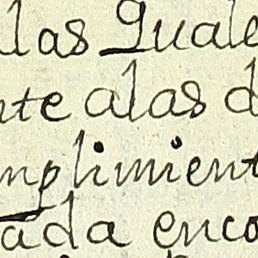 las Quale
nte alas d
mplimient
ada enco